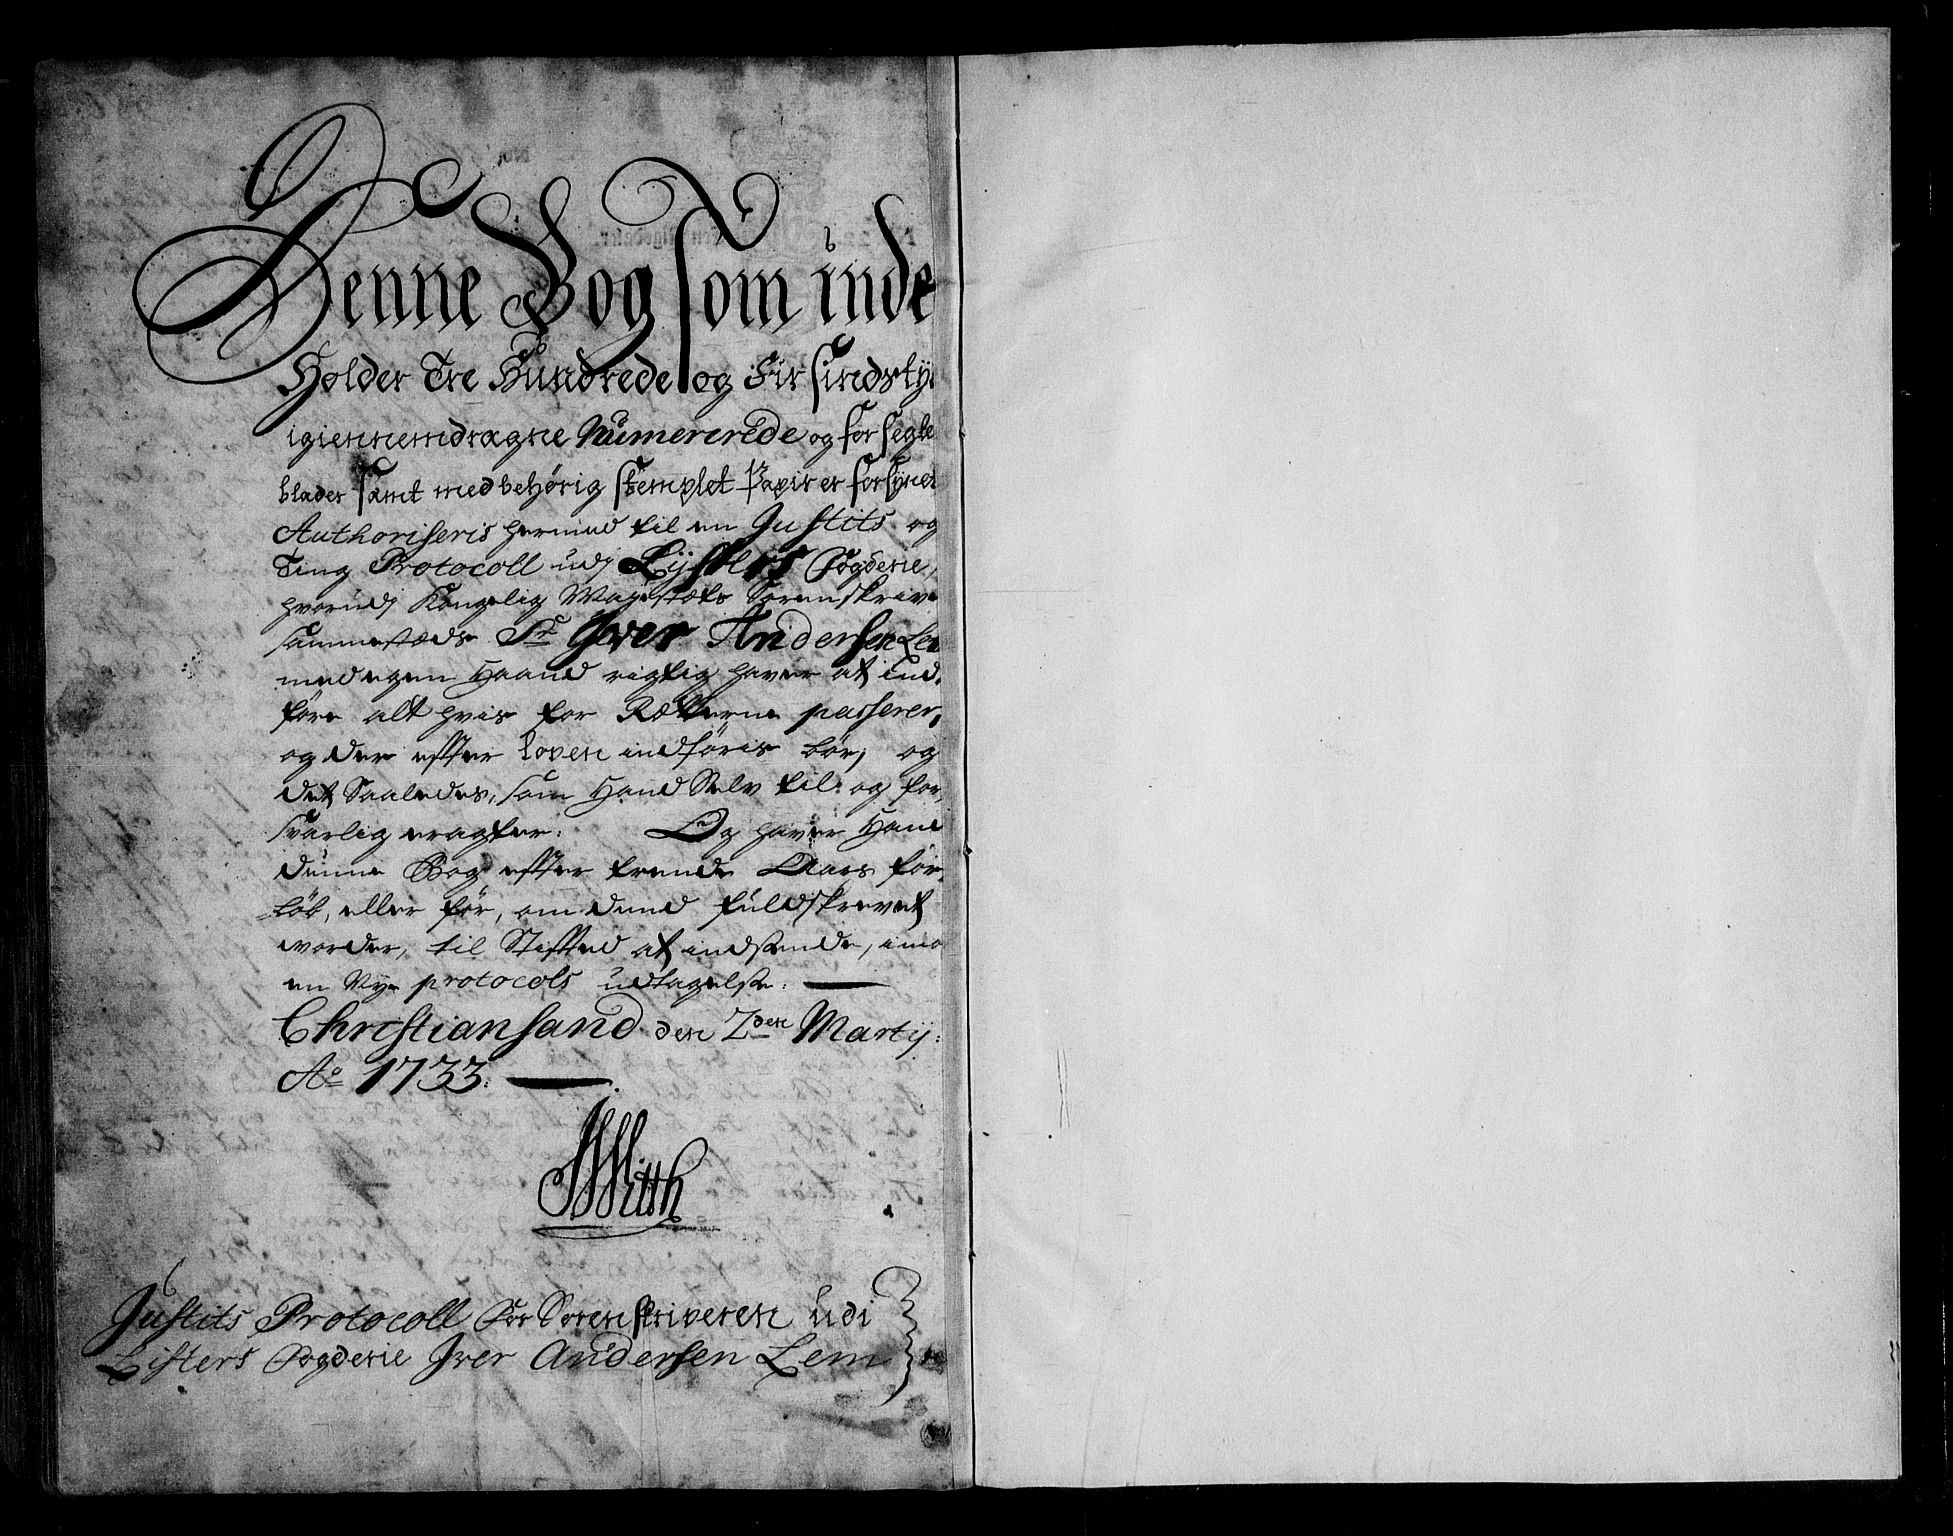 Denne Bog som inde
Holder Tre Hundrede og Fir sindsty
igiennemdragne Numererede og forsegle
blader samt med behørig stemplet Papir er forsynet
Authoriseris hermed til en Justits og
Ting Protocoll udj Lysters Fogderie,
hvorudj Kongelig Mayestæts Sorenskrive
sammestæds Sr. Iver Andersen Lem
med egen Haand rigtig haver at ind,
føre alt hvis for Rætterne passerer,
og der effter Loven indføris bør, og
det Saaledes, som Hand Selv til og for,
svarlig eragter: Og haver Hand
denne Bog effter trende Aars for,
løb, eller før, om dend fuldskrevet
vorder, til Stiftet at indsende, imod
en Nye protocols udtagelse:
Christiansand den 2den Martij:
Ao 1733:
Justits Protocoll For Sorenskriveren udi
Listers Fogderie Iver Andersen Lem